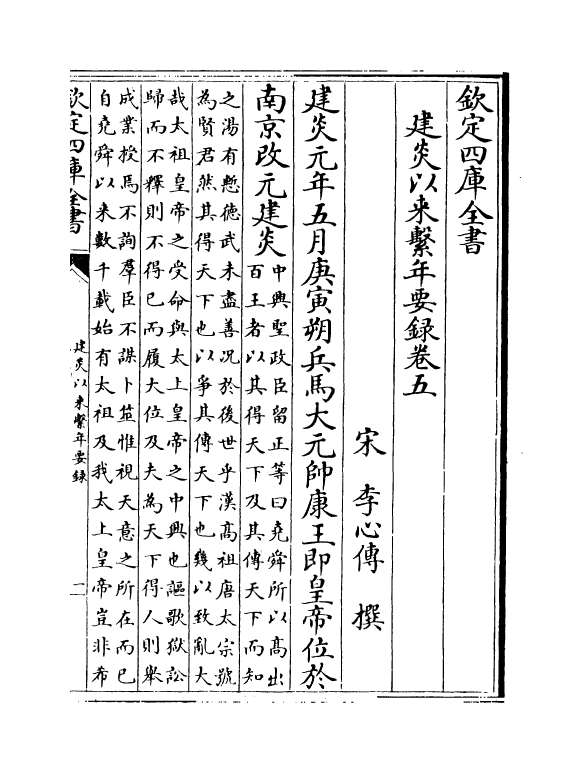 欽定四庫全書
建炎以来繫年要録卷五
宋 李心傳 撰
建炎元年五月庚寅朔兵馬大元帥康王即皇帝位於
南京改元建炎
中興聖政臣留正等曰堯舜所以髙出
百王者以其得天下及其傳天下而知
之湯有慙徳武未盡善况於後世乎漢髙祖唐太宗號
為賢君然其得天下也以爭其傳天下也幾以致亂大
哉太祖皇帝之受命與太上皇帝之中興也謳歌獄訟
歸而不釋則不得已而履大位及夫為天下得人則舉
成業授焉不詢羣臣不謀卜筮惟視天意之所在而已
自堯舜以来數千載始有太祖及我太上皇帝豈非希
欽定四庫全書
建炎以来繫年要録
二